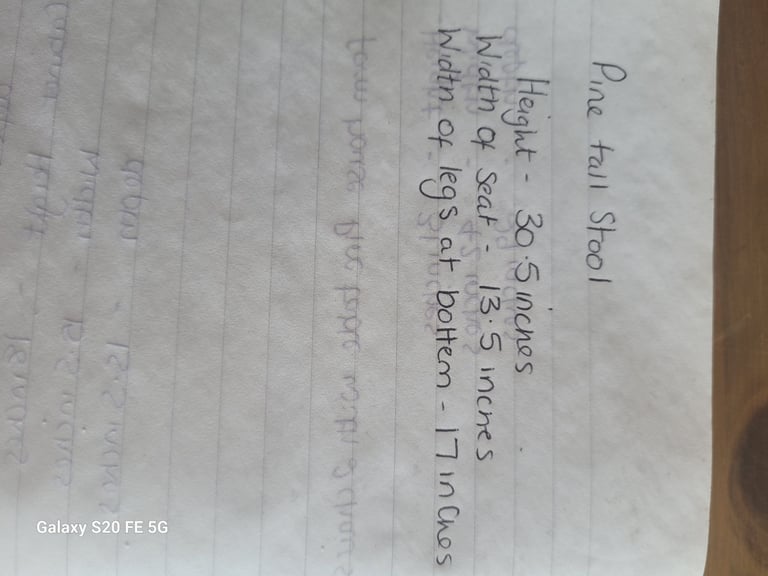 Pine tall Stool
Height - 30.5 inches
Width of seat - 13.5 inches
Width of legs at bottem - 17 inches
Galaxy S20 FE 5G